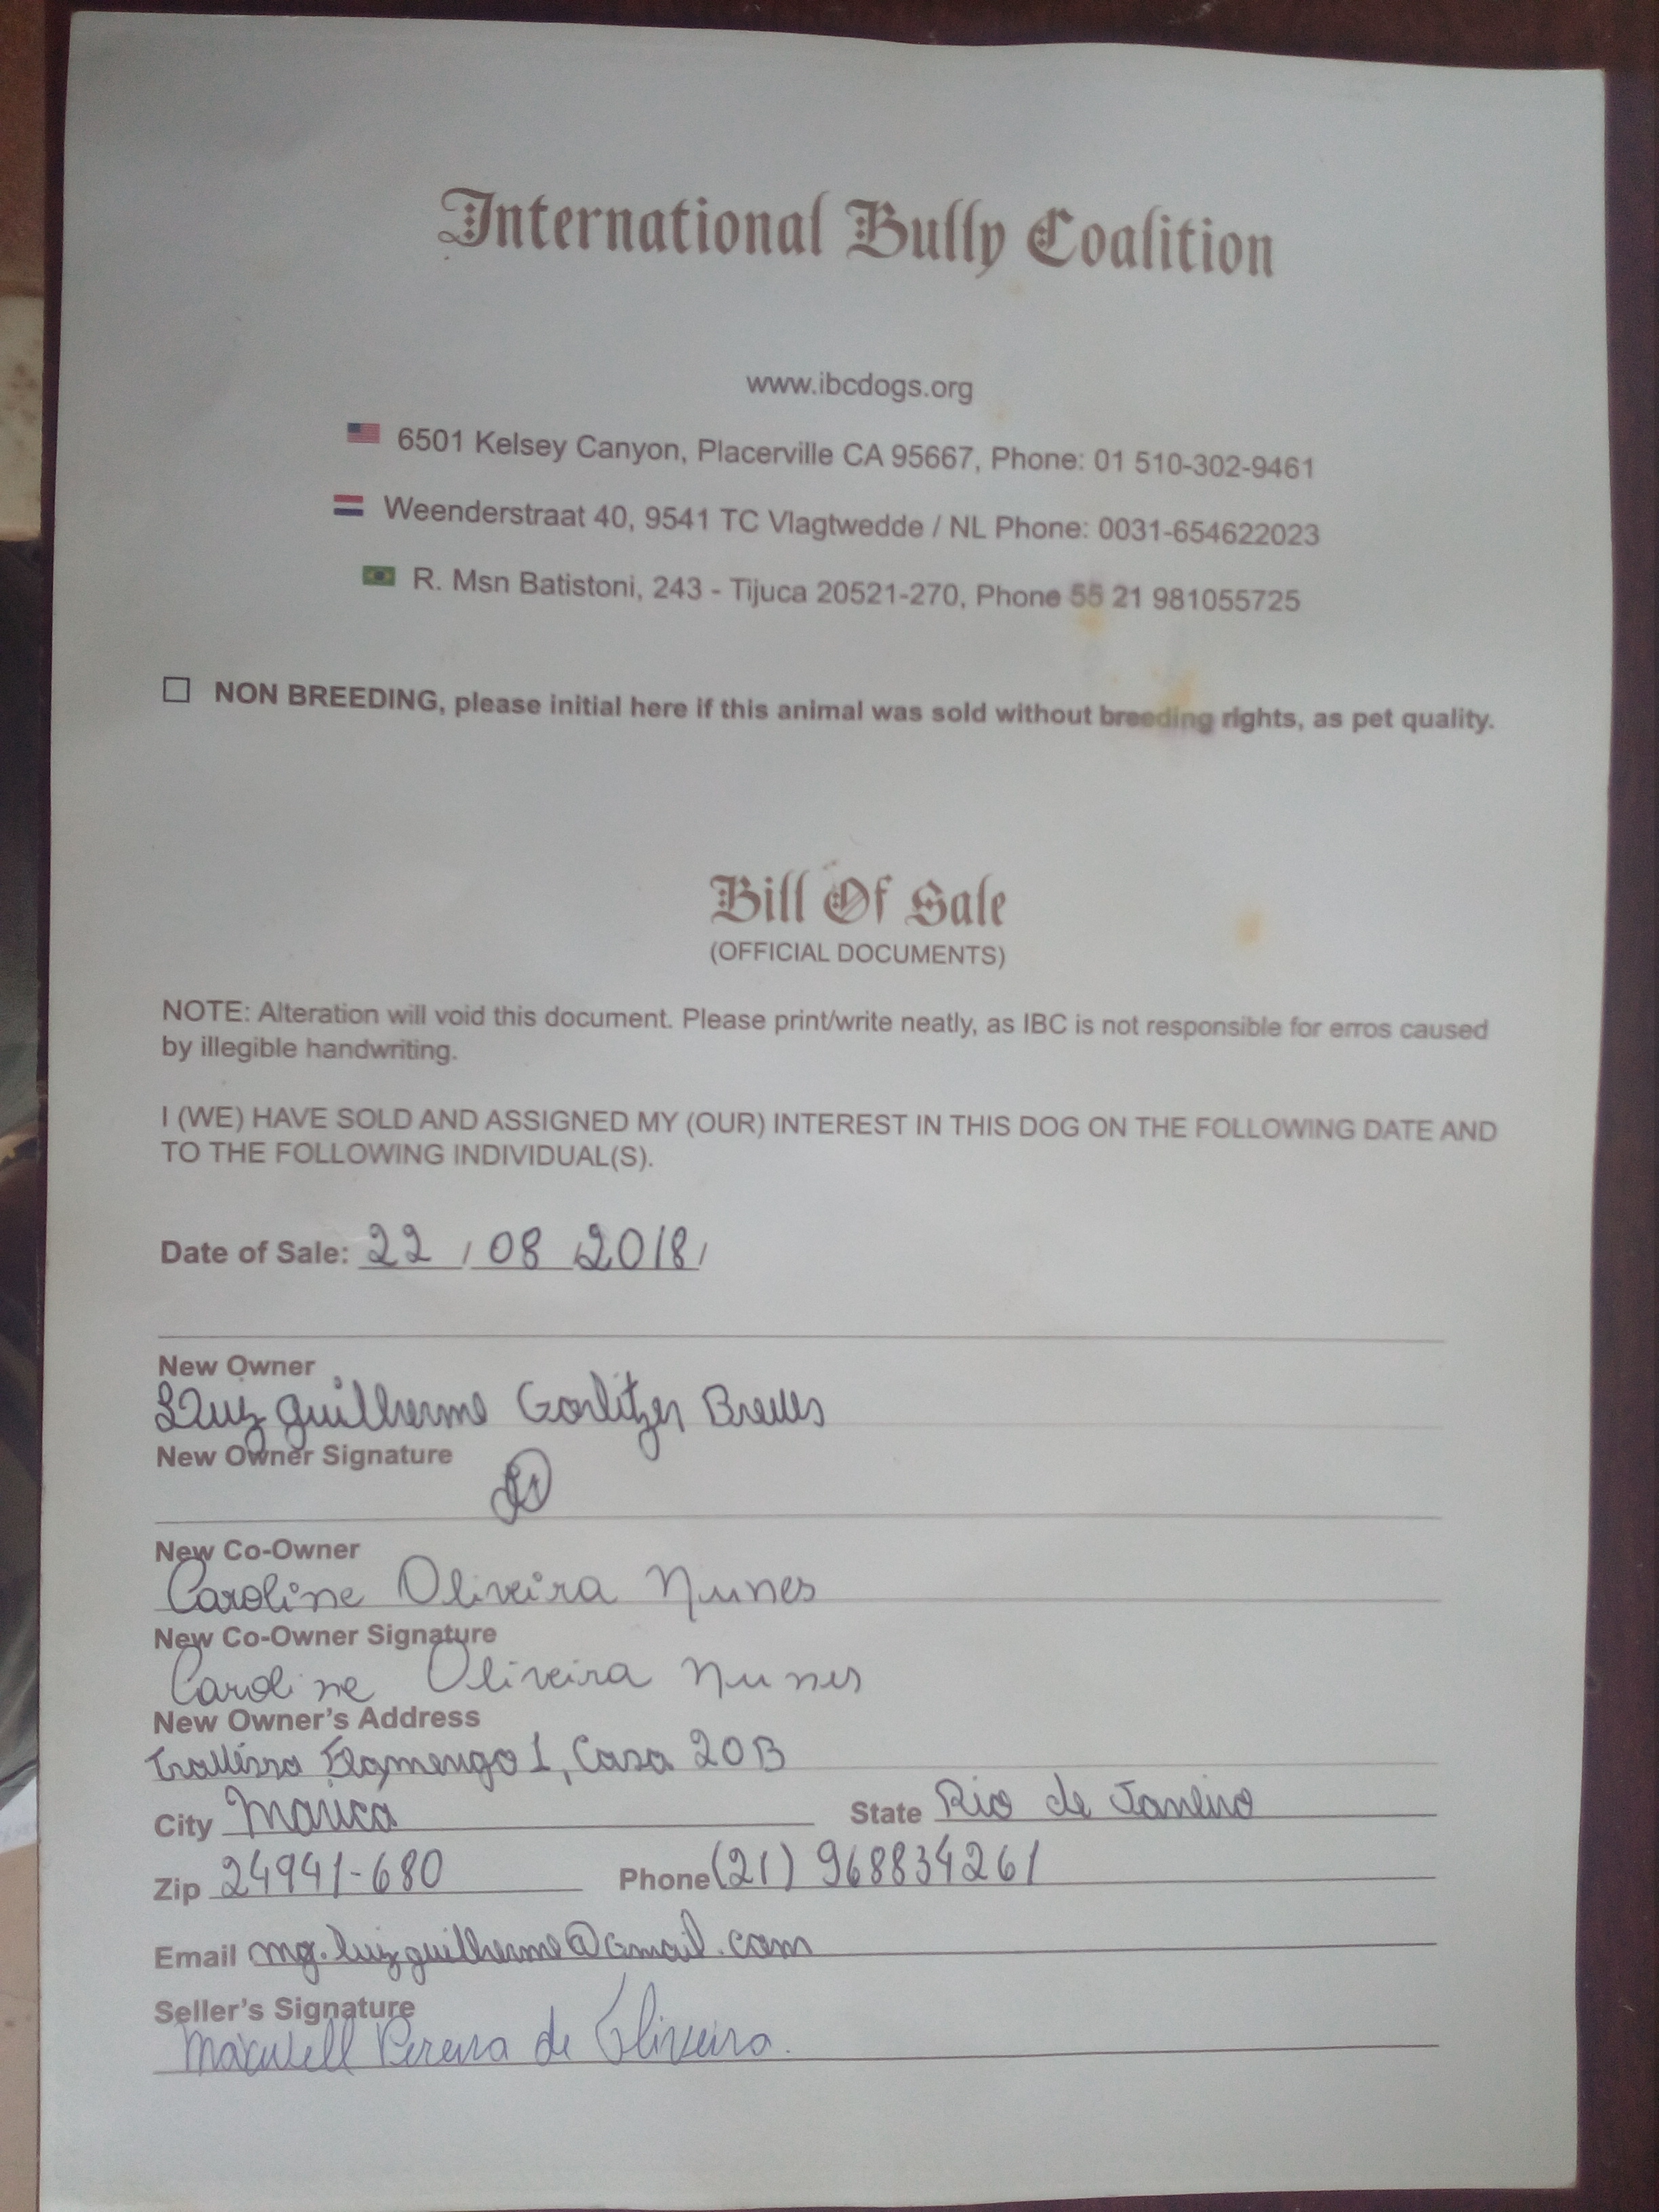 International Bully Coalition
www.ibcdogs.org
6501 Kelsey Canyon, Placerville CA 95667, Phone: 01 510-302-9461
Weenderstraat 40, 9541 TC Vlagtwedde / NL Phone: 0031-654622023
R. Msn Batistoni, 243 - Tijuca 20521-270, Phone 55 21 981055725
NON BREEDING, please initial here if this animal was sold without breeding rights, as pet quality.
Bill Of Sale
(OFFICIAL DOCUMENTS)
NOTE: Alteration will void this document. Please print/write neatly, as IBC is not responsible for erros caused
by illegible handwriting.
I (WE) HAVE SOLD AND ASSIGNED MY (OUR) INTEREST IN THIS DOG ON THE FOLLOWING DATE AND
TO THE FOLLOWING INDIVIDUAL(S).
Date of Sale: 22 / 08 / 2018 /
New Owner
Luiz Guilherme Gorlitzer
New Owner Signature
New Co-Owner
Caroline Oliveira Nunes
New Co-Owner Signature
Caroline Oliveira Nunes
New Owner's Address
Travessa Flamengo 1, Casa 20B
City Marica State Rio de Janeiro
Zip 24941-680 Phone (21) 968834261
Email mg.luizguilherme@Gmail.com
Seller's Signature
Maxwell Pereira de Oliveira.